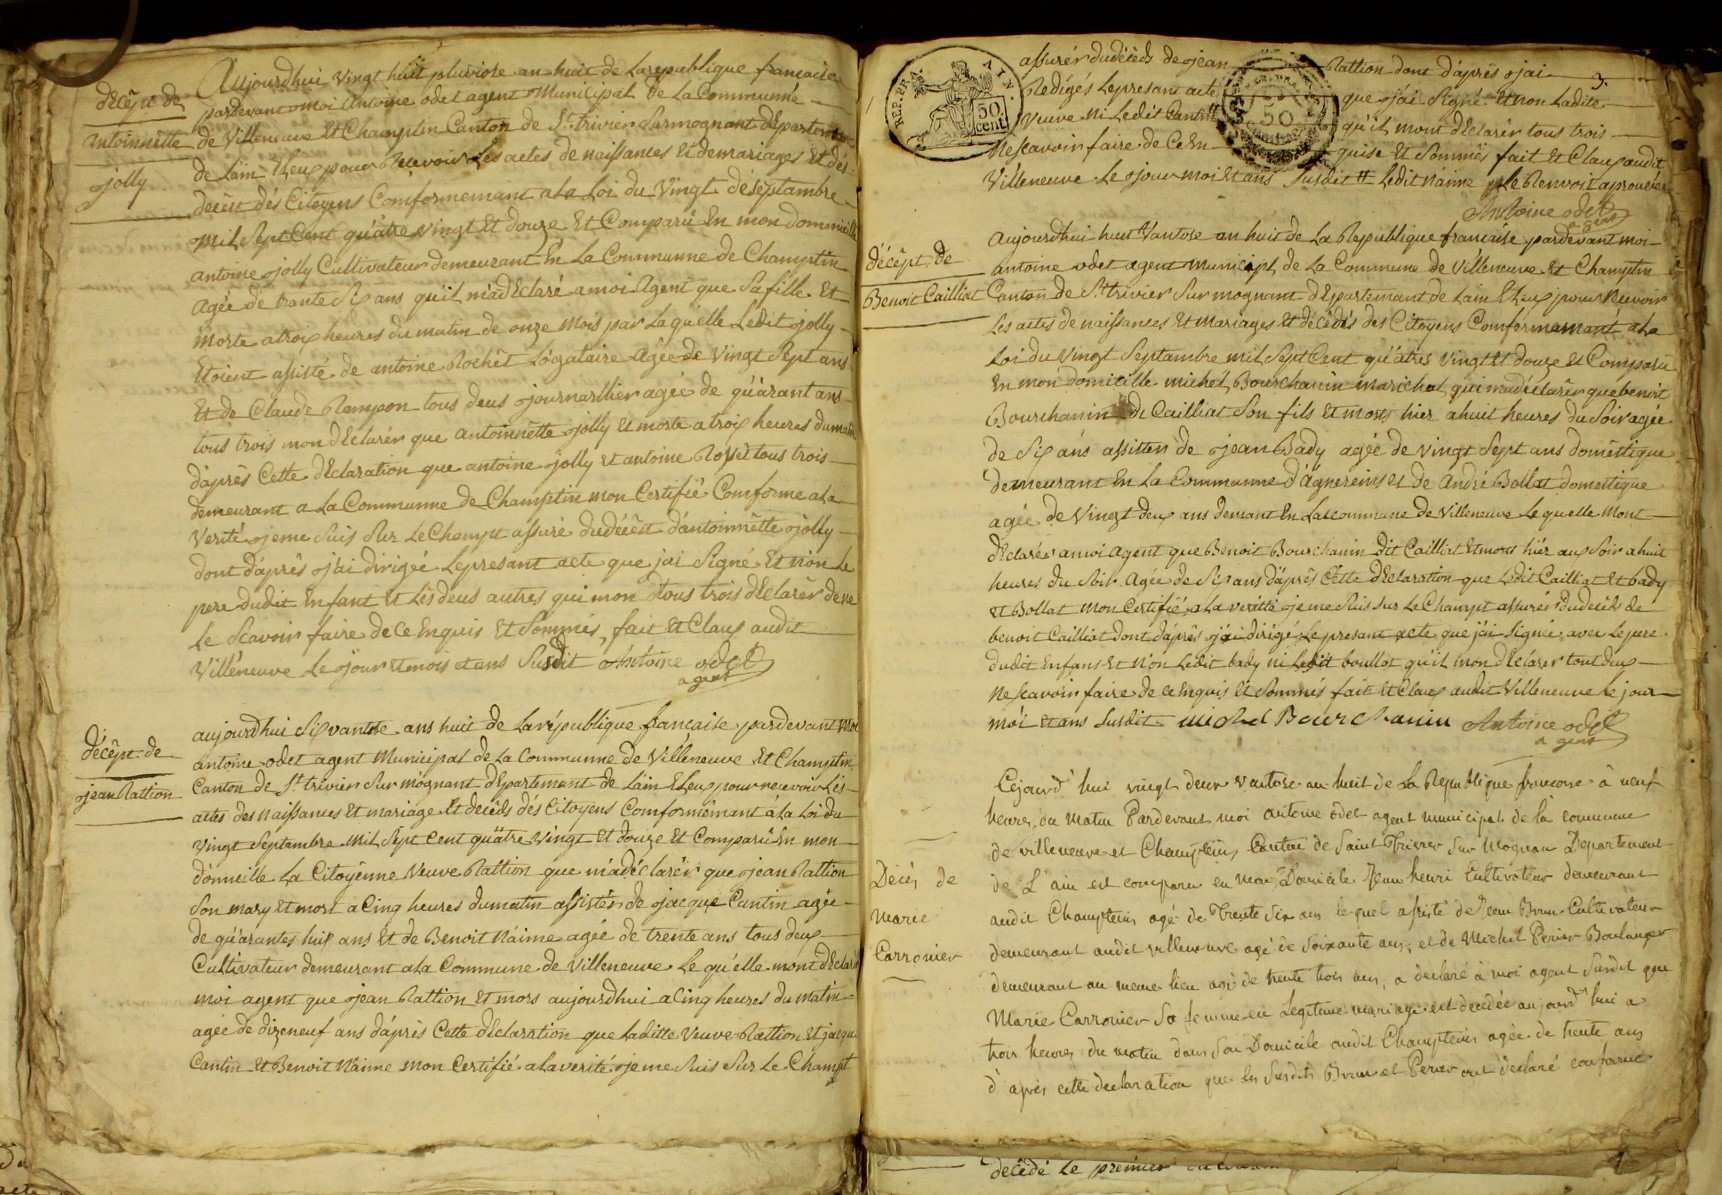 décêpt de
Antoinnette
jolly
Aujourdhui vingt huit pluviose an huit de Larepublique francaise
pardevant moi Antoine odet agent Municipal de La Communne
de Villeneuve Et Champtin Canton de St trivier Surmognant dEpartement
de Lain Eleu pour Recevoir Les actes de naissances Et demariages Et des
decêst dés Citoyens Comformemant ala Loi du Vingt déseptambre
Mil Sept Cent quâtre vingt Et douze Et Comparü En mon dommicille
antoine jolly Cultivateur demeurant En La Communne de Champtin
Agée de trante Six ans quil madEclaré amoi Agent que Safille Et
Morte atrois heures du matin de onze Mois par La quelle Ledit jolly
Etoient assisté de antoine Rochêt Légataire Agée de Vingt Sept ans
Et de Claude Rampon tous deus journallier agée de quârant ans
tous trois mon dEclarér que antoinnétte jolly Et morte a trois heures dumatin
dâprês Cette dEclaration que antoine jolly Et antoine Rosset tous trois
demeurant a La Communne de Champtin mon Certifié Comforme ala
Verité jeme Suis Sur LeChampt assuré dudécêt dântoinnétte jolly
dont dâprês jâi dirigée Lepresant acte que jai Signé Et non Le
pere dudit Enfant Et Lés deus autres qui mon tous trois dEclarér dene
Le Scavoir faire de Ce Enquis Et Sommés fait Et Claus audit
Villéneuve Le jour Et mois et ans Susdit Antoine odet
agent
décêpt de
jean Rattion
aujourdhui Six vantose ans huit de La république francaise pardevant Moi
antoine odet agent Municipal de La Communne de Villeneuve Et Champtin
Canton de St trivier Sur mognant dEpartemant de Lain ELeu pour recevoir Lés
actes des Naissances Et mariage Et décéds dés Citoyens Comformémant á la Loi du
Vingt Septambre Mil Sept cent quâtre vingt Et douze Et Comparü En mon
dômicille La Citoyênne Veuve Rattion que mádéclarér que jean Rattion
Son mary Et mort a Cinq heures dumatin assistés de jacque Cantin agée
de quârantes huit ans Et de Benoit Náime agée de trente ans tous deux
Cultivateur demeurant ala Commune de Villeneuve Le quélle mont dEclaré
moi agent que jean Rattion Et mors aujourdhui a Cinq heures du matin
agée de dizeneuf ans dâprés Cette dEclaration que Laditte Veuve Rattion Et jacque
Cantin Et Benoit Náime Mon Certifié a La verité jeme Suis Sur Le Champt
3.
REP. FRA.
50
cent.
50
assurér dudécêds de jean Rattion dont dâprês jai
Rédigés Lepresant acte que jai Signé Et non Ladite
Veuve Ni Ledit Cantin quil mont dEclarér tous trois
Ne Scavoir faire de Ce En quise Et Sommés fait Et Claus audit
Villeneuve Le jour moi Et ans Susdit Ledit Náime Le Renvoit aprouvée
Antoine odet
agent
décêpt de
Benoit Cailliat
Aujourdhui huit Vantose an huit de La Republique francaise pardevant moi
antoine odet agent municipl de La Commune de Villeneuve Et Champtin
Canton de St trivier Sur mognant dEpartemant de Lain ELeu pour Recevoir
Les actes de naissances Et Mariages Et décédés des Citoyens Comformemant a La
Loi du Vingt Septambre mil Sept Cent quâtre Vingt Et douze Et Comparü
En mon domicille michel Bourchanin marichal qui madéclarér quebenoit
Bourchanin dit Cailliat Son fils Et mort hier ahuit heures du Soir agée
de Six ans assisten de jean Bady agée de vingt Sept ans domêstique
demeurant En La Communne dâgnereins Et de André Bollat domestique
agée de Vingt deux ans demant En La commune de Villeneuve Le quelle Mont
dEclaré amoi agent que Benoit Bourchanin dit Cailliat Et mort hiér au Soir a huit
heures du Soir agée de Six ans dâprés Cétte dEclaration que Ledit Cailliat Et bady
Et Bollat mon Certifié a La verité jeme Suis Sur Le Champt assurér du décéds de
benoit Cailliat dont dâprés jai dirigé Le presant acte que jâi Signée avec Le pere
dudit Enfans Et Non Ledit bady ni Ledit boullot quil mon dEclarer tout deux
Ne Scavoir faire de ce Enquis Et Sommés fait Et Claus audit Villeneuve Le jour
Moi Et ans Susdit michel Bourchanin Antoine odet
agent
Décès de
Marie
Carronier
Cejourd'hui vingt deux vantose an huit de La Republique francaise à neuf
heures du matin Pardevant moi antoine odet agent municipal de la commune
de villeneuve et Champtein, Canton de Saint Trivier Sur Mognan Departement
de L'ain est comparu en mon Domicile Jean henri Cultivateur demeurant
audit Champtein agé de Trente Six ans lequel assisté de Jean Brun Cultivateur
demeurant audit villeneuve agé de Soixante ans, et de Michel Perier Boulanger
demeurant au meme lieu agé de trente trois ans, a declaré à moi agent Susdit que
Marie Carronier Sa femme en Legitime mariage est decedée aujourd'hui a
trois heures du matin dans Son Domicile audit Champtein agée de trente ans
d'après cette declaration que les Susdits Brun et Perier ont déclaré conforme
décédé Le premier